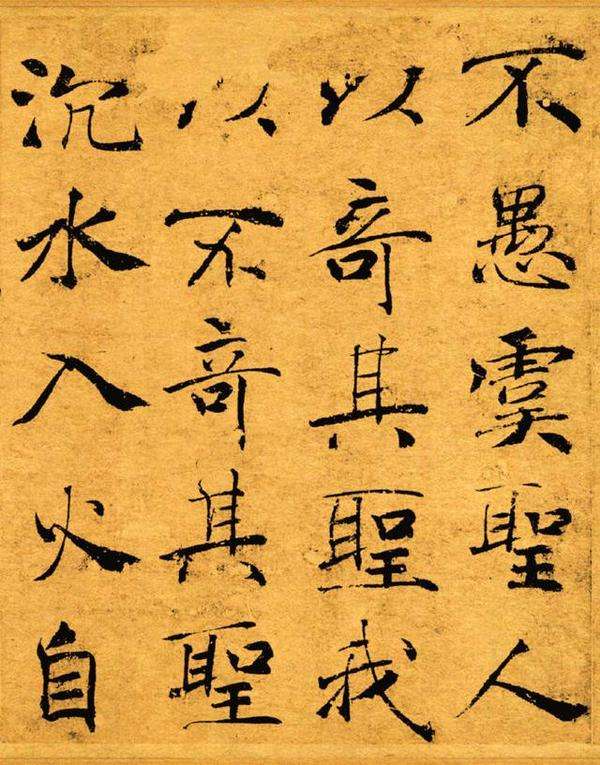 不愚虞聖人
以奇其聖我
以不奇其聖
沉水入火自